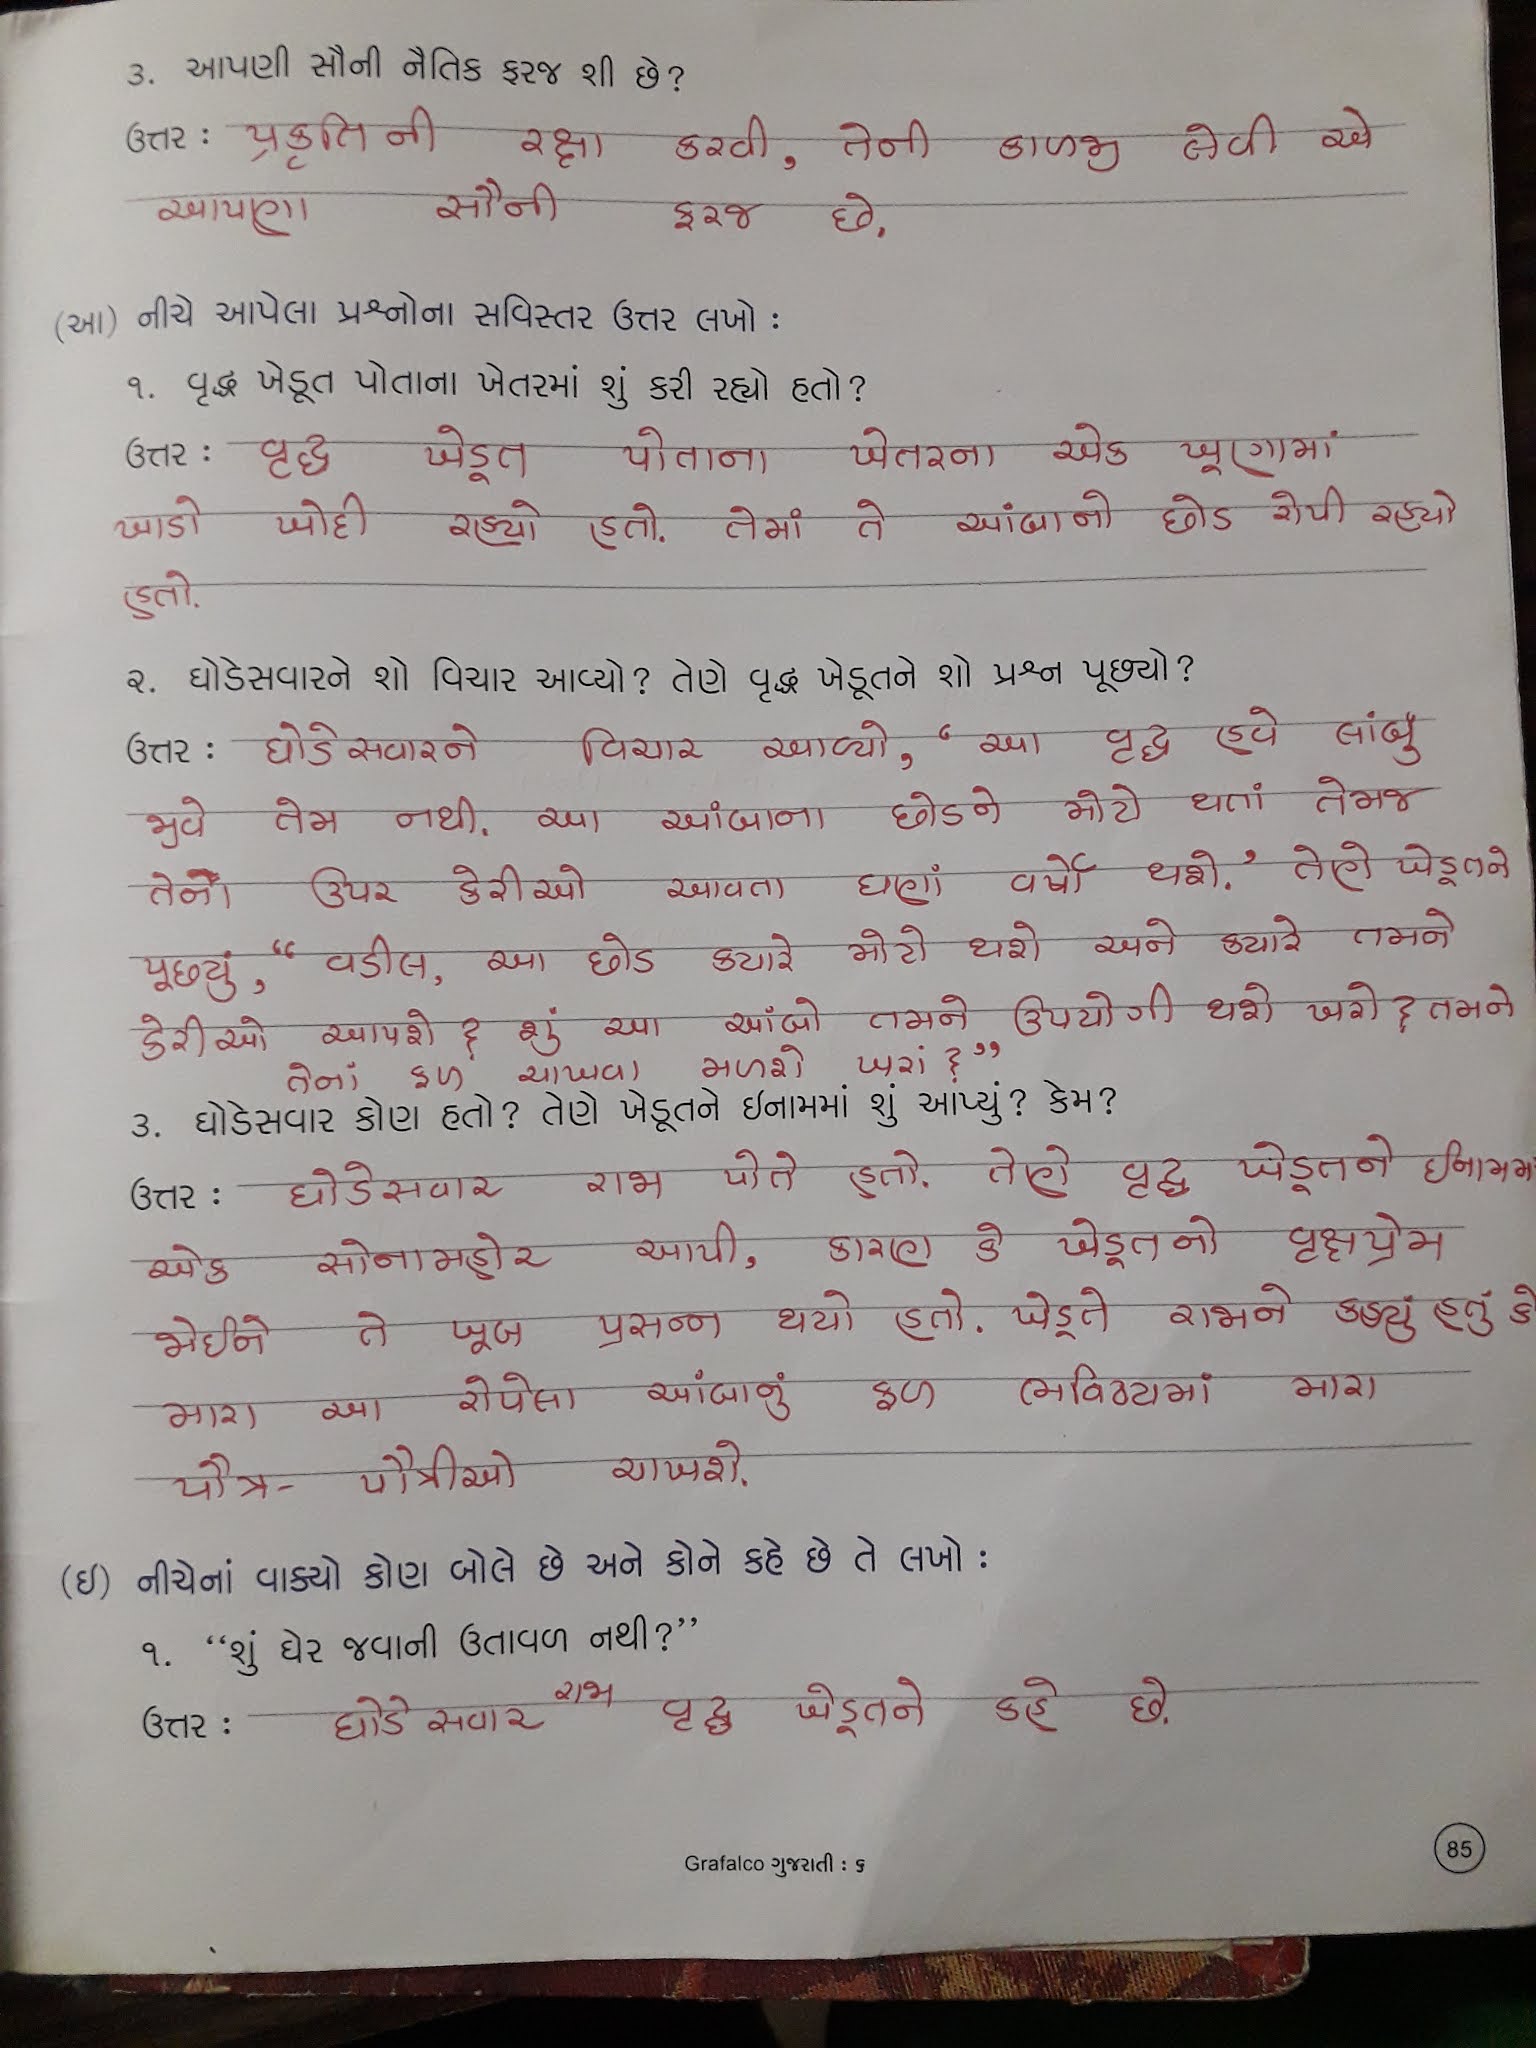 ૩. આપણી સૌની નૈતિક ફરજ શી છે?
ઉત્તર : પ્રકૃતિની રક્ષા કરવી, તેની કાળજી લેવી એ
આપણા સૌની ફરજ છે.
(આ) નીચે આપેલા પ્રશ્નોના સવિસ્તર ઉત્તર લખો :
૧. વૃદ્ધ ખેડૂત પોતાના ખેતરમાં શું કરી રહ્યો હતો?
ઉત્તર : વૃદ્ધ ખેડૂત પોતાના ખેતરના એક ખૂણામાં
ખાડો ખોદી રહ્યો હતો. તેમાં તે આંબાનો છોડ રોપી રહ્યો
હતો.
૨. ઘોડેસવારને શો વિચાર આવ્યો? તેણે વૃદ્ધ ખેડૂતને શો પ્રશ્ન પૂછ્યો?
ઉત્તર : ઘોડેસવારને વિચાર આવ્યો, ‘આ વૃદ્ધ હવે લાંબુ
જીવે તેમ નથી. આ આંબાના છોડને મોટો થતાં તેમજ
તેની ઉપર કેરીઓ આવતા ઘણાં વર્ષો થશે.’ તેણે ખેડૂતને
પૂછ્યું, “વડીલ, આ છોડ ક્યારે મોટો થશે અને ક્યારે તમને
કેરીઓ આપશે? શું આ આંબો તમને ઉપયોગી થશે ખરો? તમને
તેનાં ફળ ચાખવા મળશે ખરાં?”
૩. ઘોડેસવાર કોણ હતો? તેણે ખેડૂતને ઈનામમાં શું આપ્યું? કેમ?
ઉત્તર : ઘોડેસવાર રાજા પોતે હતો. તેણે વૃદ્ધ ખેડૂતને ઈનામમાં
એક સોનામહોર આપી, કારણ કે ખેડૂતનો વૃક્ષપ્રેમ
જોઈને તે ખૂબ પ્રસન્ન થયો હતો. ખેડૂતે રાજાને કહ્યું હતું કે
મારા આ રોપેલા આંબાનું ફળ ભવિષ્યમાં મારા
પૌત્ર- પૌત્રીઓ ચાખશે.
(ઈ) નીચેનાં વાક્યો કોણ બોલે છે અને કોને કહે છે તે લખો :
૧. “શું ઘેર જવાની ઉતાવળ નથી?”
ઉત્તર : ઘોડેસવાર રાજા વૃદ્ધ ખેડૂતને કહે છે.
Grafalco ગુજરાતી : ૬
85